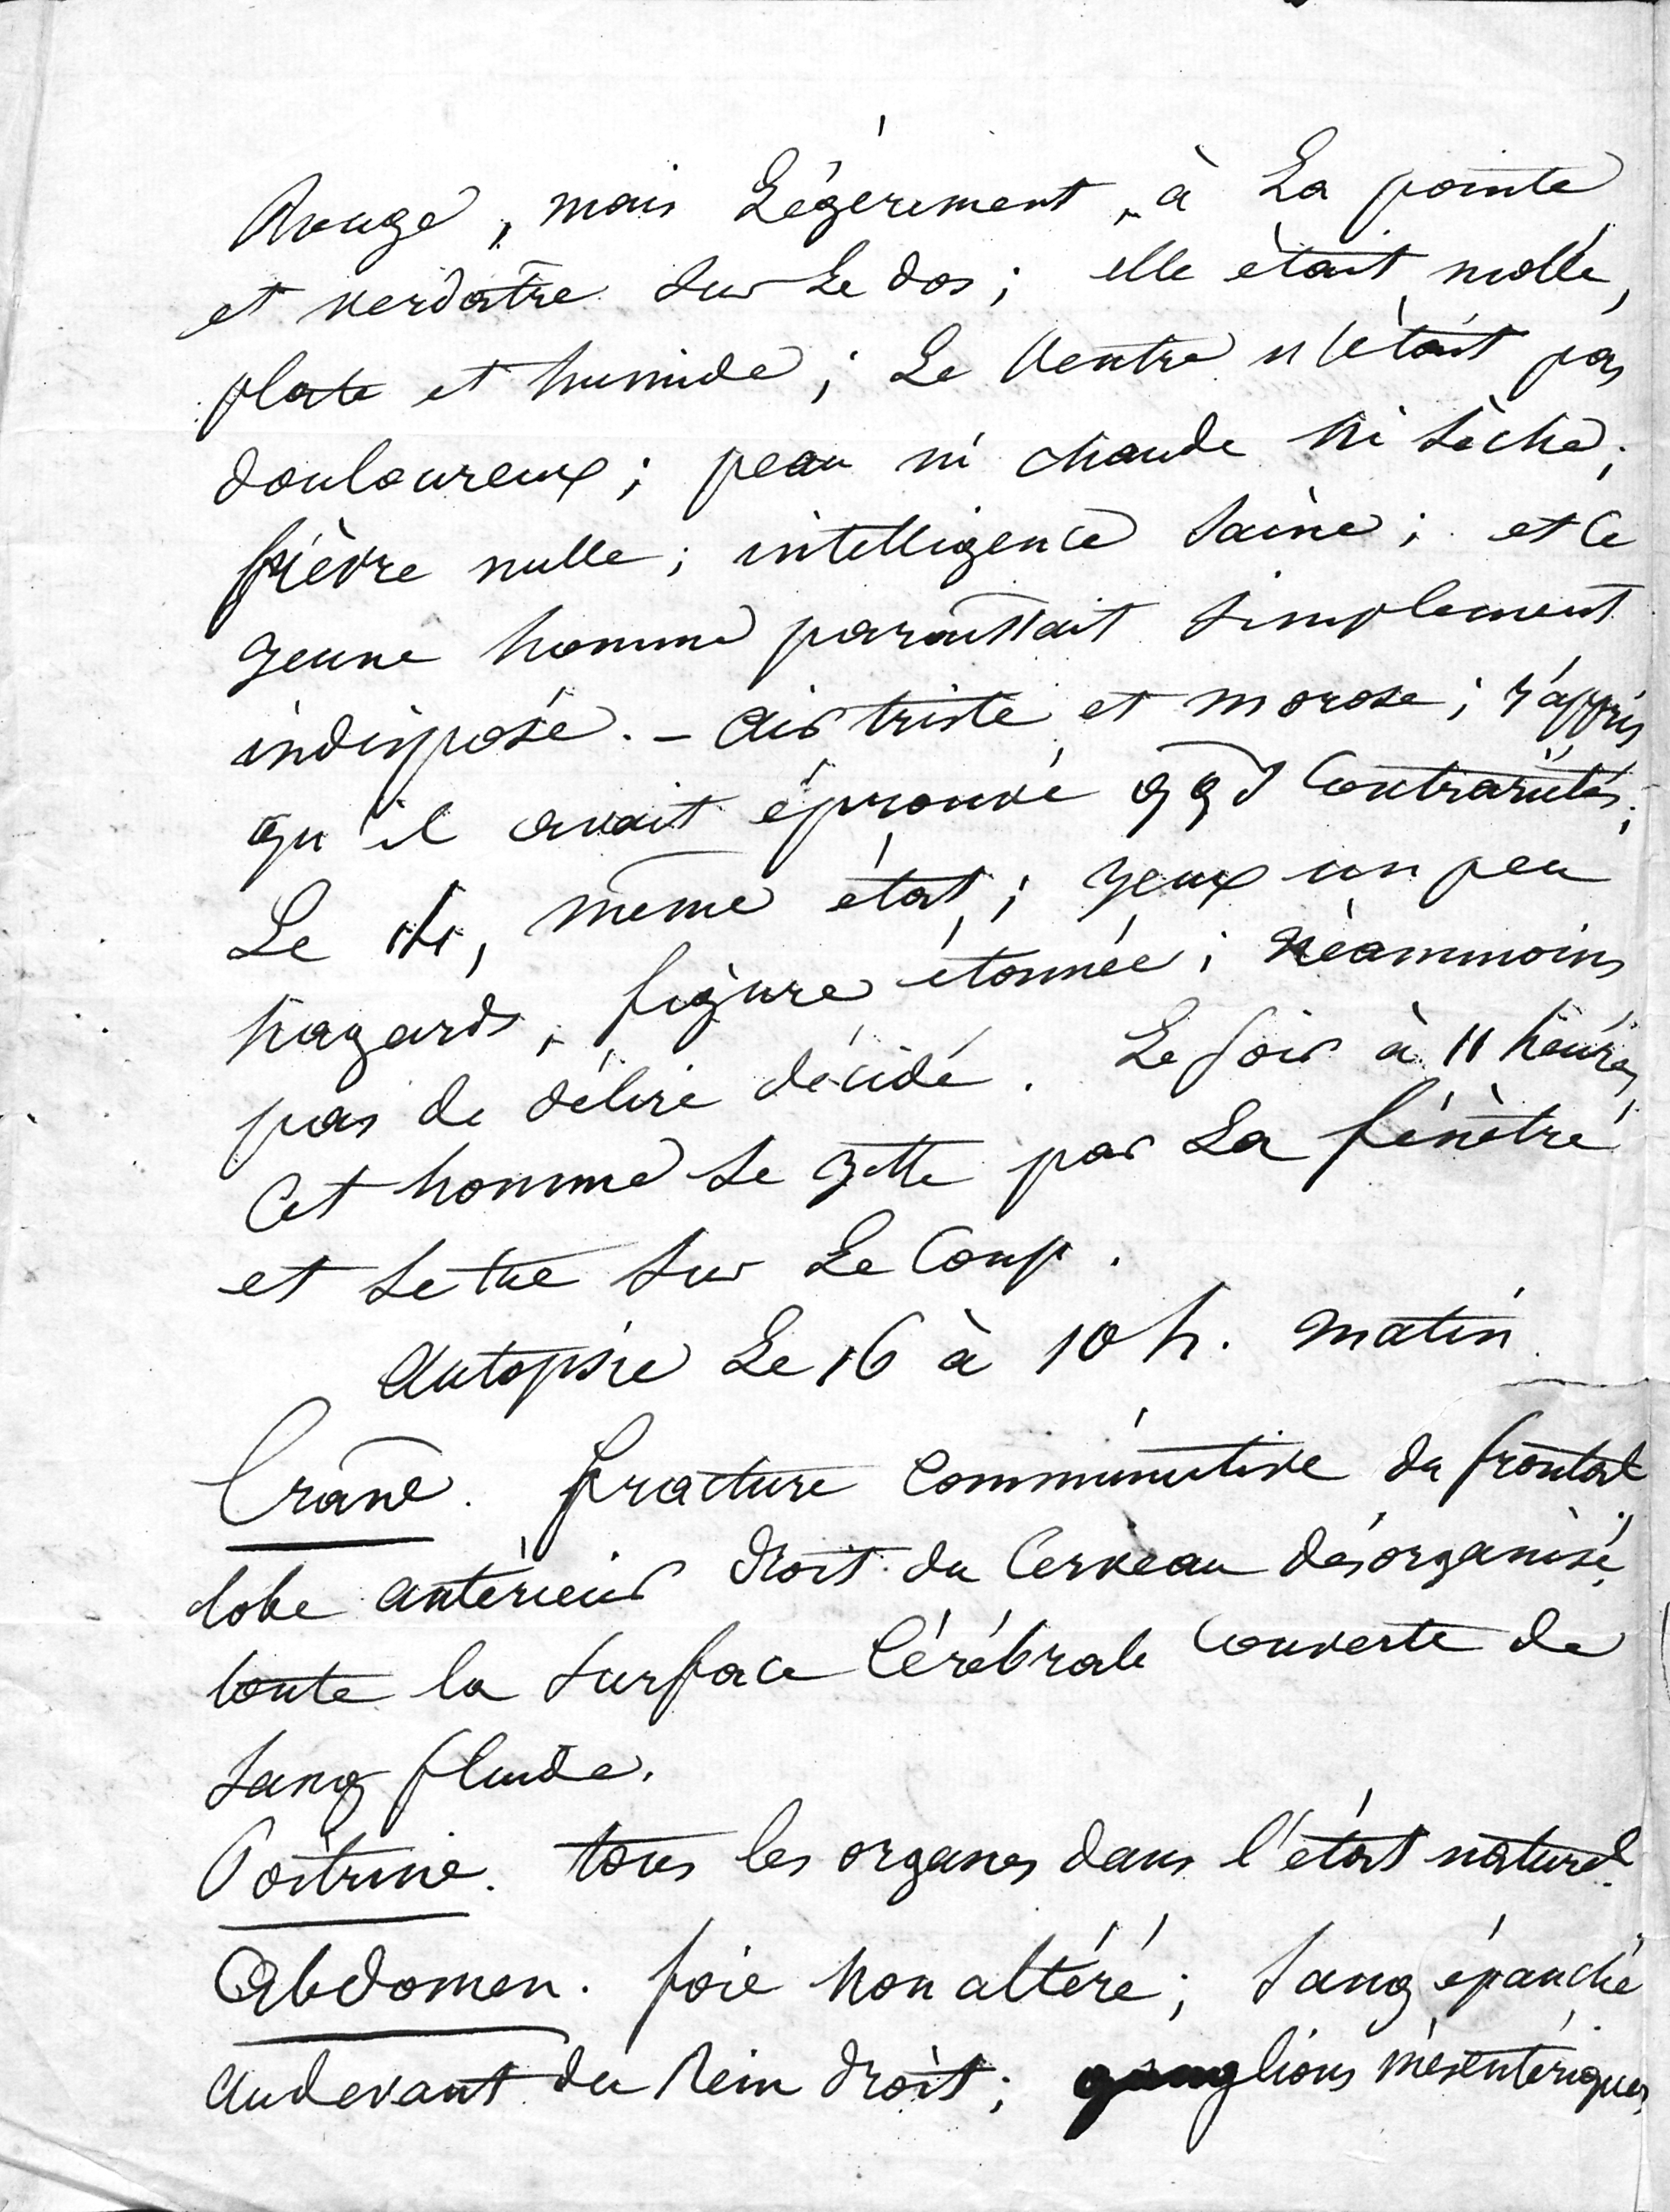 Rouge, mais Légèrement, à La pointe
et verdâtre sur Le dos ; elle était molle,
plate et humide ; Le Ventre n'était pas
douloureux ; peau ni chaude ni sèche ;
fièvre nulle ; intelligence saine ; et ce
jeune homme paraissait simplement
indisposé. - air triste et morose ; j'appris
qu'il avait éprouvé qqs Contrariétés ;
Le 14, même état ; yeux un peu
hagards, figure étonnée ; néammoins
pas de délire décidé. Le soir à 11 heures,
Cet homme se jette par La fenêtre
et se tue sur Le Coup.
Autopsie Le 16 à 10 h. matin.
Crâne. fracture Comminutive du frontal,
lobe antérieur droit du Cerveau désorganisé,
toute la surface Cérébrale Couverte de
sang fluide.
Poitrine. tous les organes dans l'état naturel.
Abdomen. foie non altéré ; sang épanché
audevant du Rein droit ; ganglions mésentériques